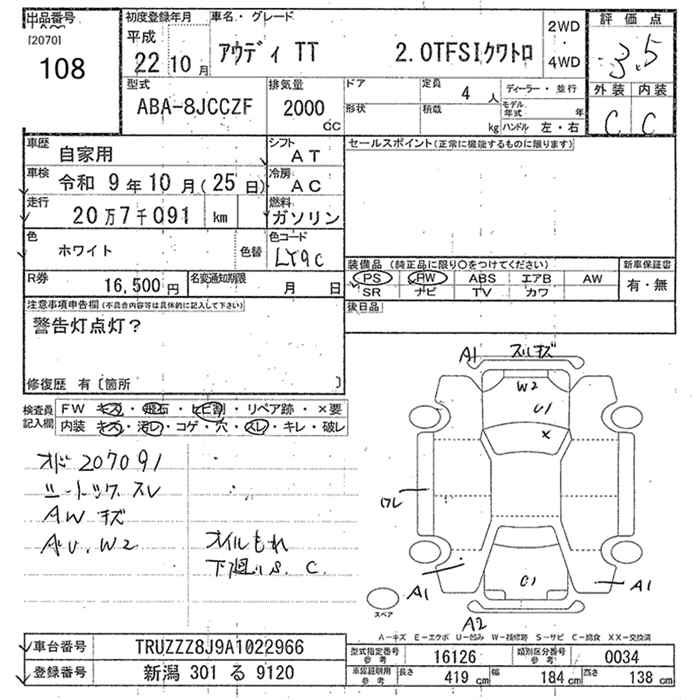 出品番号
[2070]
108
初度登録年月
平成
22 10 月
車名・グレード
アウディ TT 2.0TFSIクワトロ
2WD
・
4WD
評価点
3.5
外装 内装
C C
型式
ABA-8JCCZF
排気量
2000
cc
ドア
形状
定員
4 人
積載
kg
ディーラー・並行
モデル年式 年
ハンドル 左・右
車歴
自家用
シフト
AT
車検
令和 9年10月(25日)
冷房
AC
走行
20万7千091 km
燃料
ガソリン
色
ホワイト
色替
色コード
LY9C
R券
16,500円
名変通知期限
月 日
セールスポイント(正常に機能するものに限ります)
装備品 (純正品に限り○をつけてください)
PS PW ABS エアB AW
SR ナビ TV カワ
新車保証書
有・無
後日品
注意事項申告欄(不具合内容等は具体的に記入して下さい)
警告灯点灯?
修復歴 有〔箇所 〕
検査員
記入欄
FW キズ・飛石・ヒビ割・リペア跡・×要
内装 キズ・汚レ・コゲ・穴・スレ・キレ・破レ
オド 207091
シートックス スレ
AW キズ
AU. W2
オイルもれ
下廻り S. C.
A1 スリキズ
W2
U1
×
ワレ
C1
A1
A1
A2
スペア
A－キズ E－エクボ U－凹み W－補修跡 S－サビ C－腐食 XX－交換済
車台番号
TRUZZZ8J9A1022966
登録番号
新潟 301 る 9120
型式指定番号
参考
16126
類別区分番号
参考
0034
車両証明時
参考
長さ
419 cm
幅
184 cm
高さ
138 cm